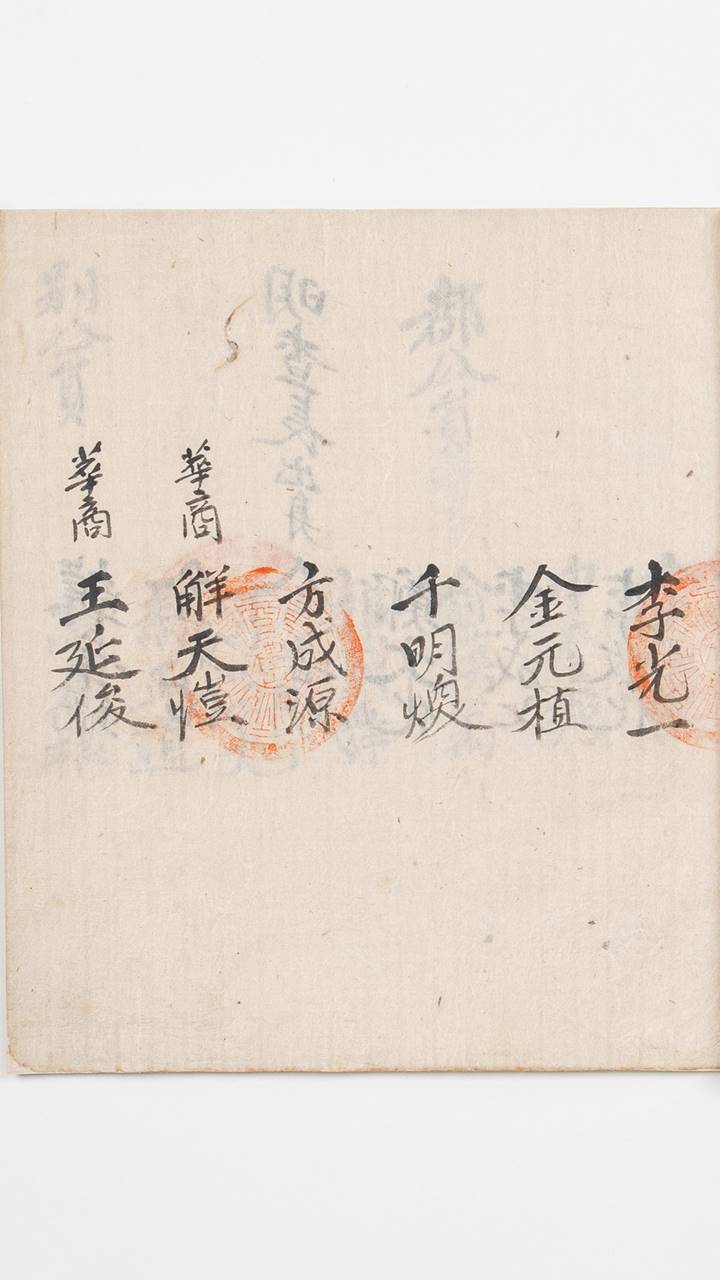 李光一
金元植
千明煥
方成源
華商 解天愷
華商 王延俊